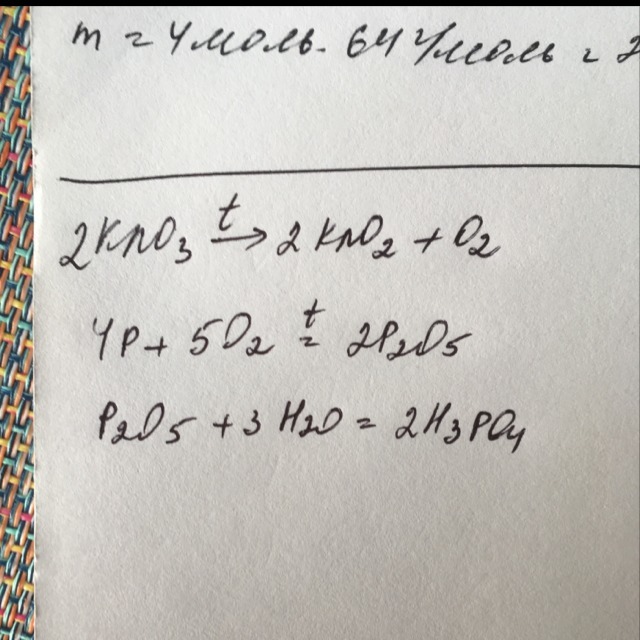 m = 4 моль · 64 г/моль = 2
2KNO₃ t→ 2KNO₂ + O₂
4P + 5O₂ t= 2P₂O₅
P₂O₅ + 3H₂O = 2H₃PO₄